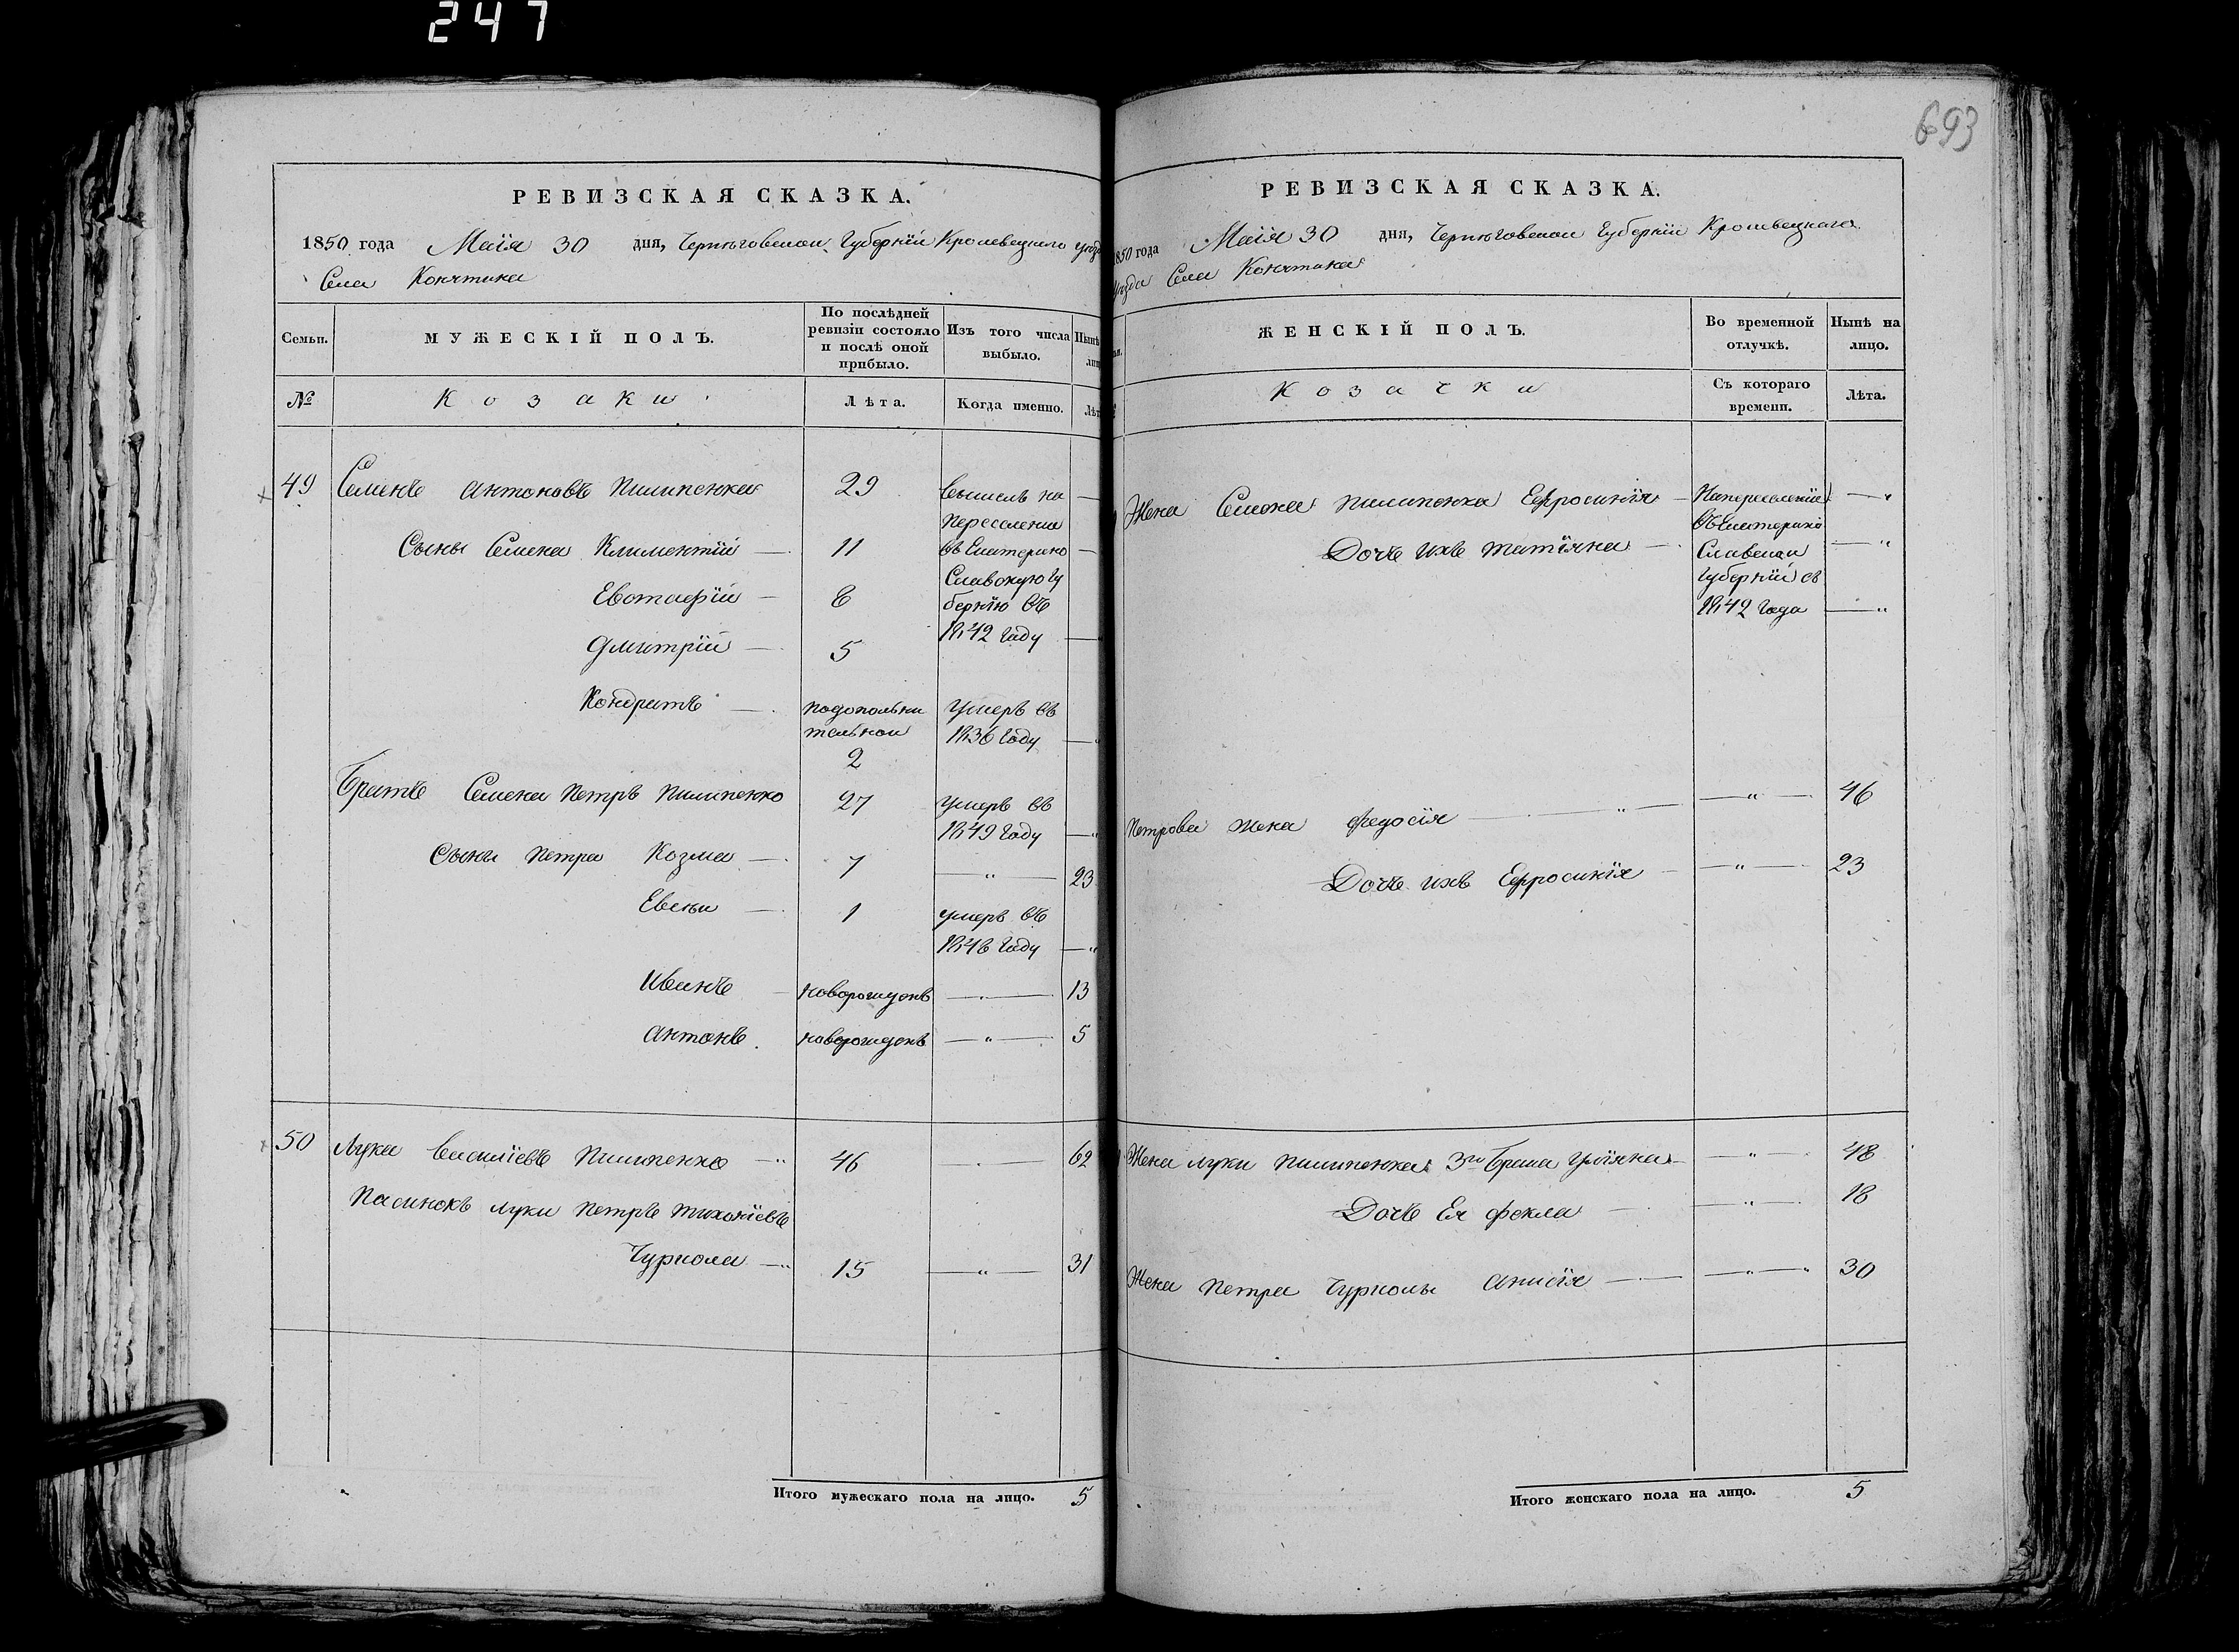 247
693
РЕВИЗСКАЯ СКАЗКА.
1850 года Маія 30 дня, Черниговской Губерніи Кролевецкаго уезда
Села Конятина
Семьи.
МУЖЕСКІЙ ПОЛЪ.
По послѣдней
ревизіи состояло
и послѣ оной
прибыло.
Изъ того числа
выбыло.
Нынѣ
лицо
№
Козаки
Лѣта.
Когда именно.
Лѣт
49 Семенъ Антоновъ Пилипенка 29
вышелъ на
переселение
въ Екатерино
Славскую Гу
бернію въ
1842 году
Сыны Семена Климентій — 11
Евстафій — 8
Дмитрій — 5
Кондратъ —
подополни
тельной
2
умеръ въ
1836 году
Братъ Семена Петръ Пилипенко 27
умеръ въ
1849 году
Сыны Петра Козма — 7 — " — 23
Евсей — 1
умеръ въ
1848 году
Иванъ новорожденъ — 13
Антонъ новорожденъ — " — 5
50 Лука Василіевъ Пилипенко — 46 — 62
Пасинокъ Луки Петръ Тихоніевъ
15 — " — 31
Итого мужескаго пола на лицо. 5
РЕВИЗСКАЯ СКАЗКА.
1850 года Маія 30 дня, Черниговской Губерніи Кролевецкаго
уезда Села Конятина
ЖЕНСКІЙ ПОЛЪ.
Во временной
отлучкѣ.
Нынѣ на
лицо.
Козачки
Съ котораго
времени.
Лѣта.
Жена Семена Пилипенка Ефросинія —
Дочь ихъ Татіяна —
На переселеніе
въ Екатерино
Славской
Губерніи съ
1842 года
Петрова жена Федосія — " — — " — 46
Дочь ихъ Ефросинія — — " — 23
Жена Луки Пилипенка 3го брака Уліяна — — " — 48
Дочь Ея Фекла — — " — 18
Жена Петра — — " — 30
Итого женскаго пола на лицо. 5